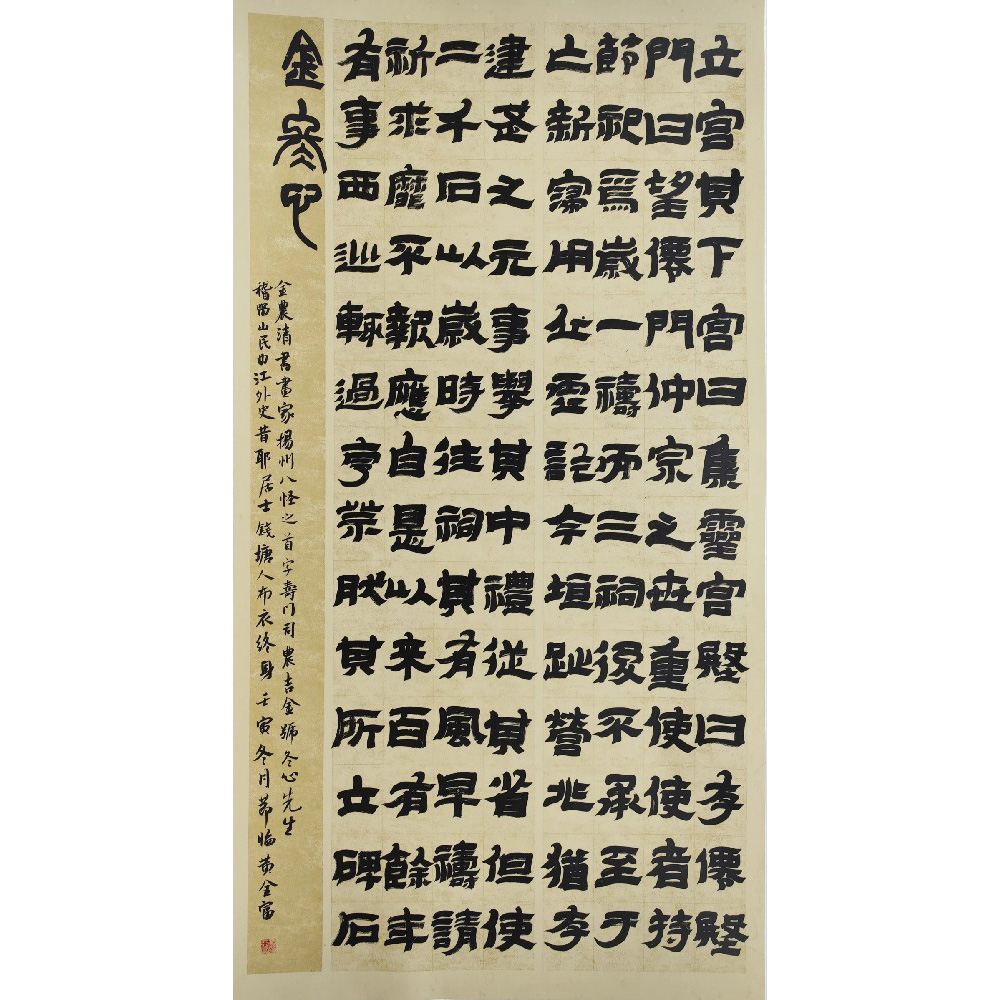 立宮其下宮曰集靈宮殿曰存僊殿
門曰望僊門仲宗之世重使使者持
節祀焉歲一禱而三祠後不承至于
亡新寖用丘虛訖今垣趾營兆猶存
建武之元事舉其中禮從其省但使
二千石以歲時往祠其有風旱禱請
祈求靡不報應自是以来百有餘年
有事西巡輒過亨祭然其所立碑石
金冬心
金農清書畫家揚州八怪之首字壽門司農吉金號冬心先生
稽留山民曲江外史昔耶居士錢塘人布衣終身壬寅冬月節臨黃金富